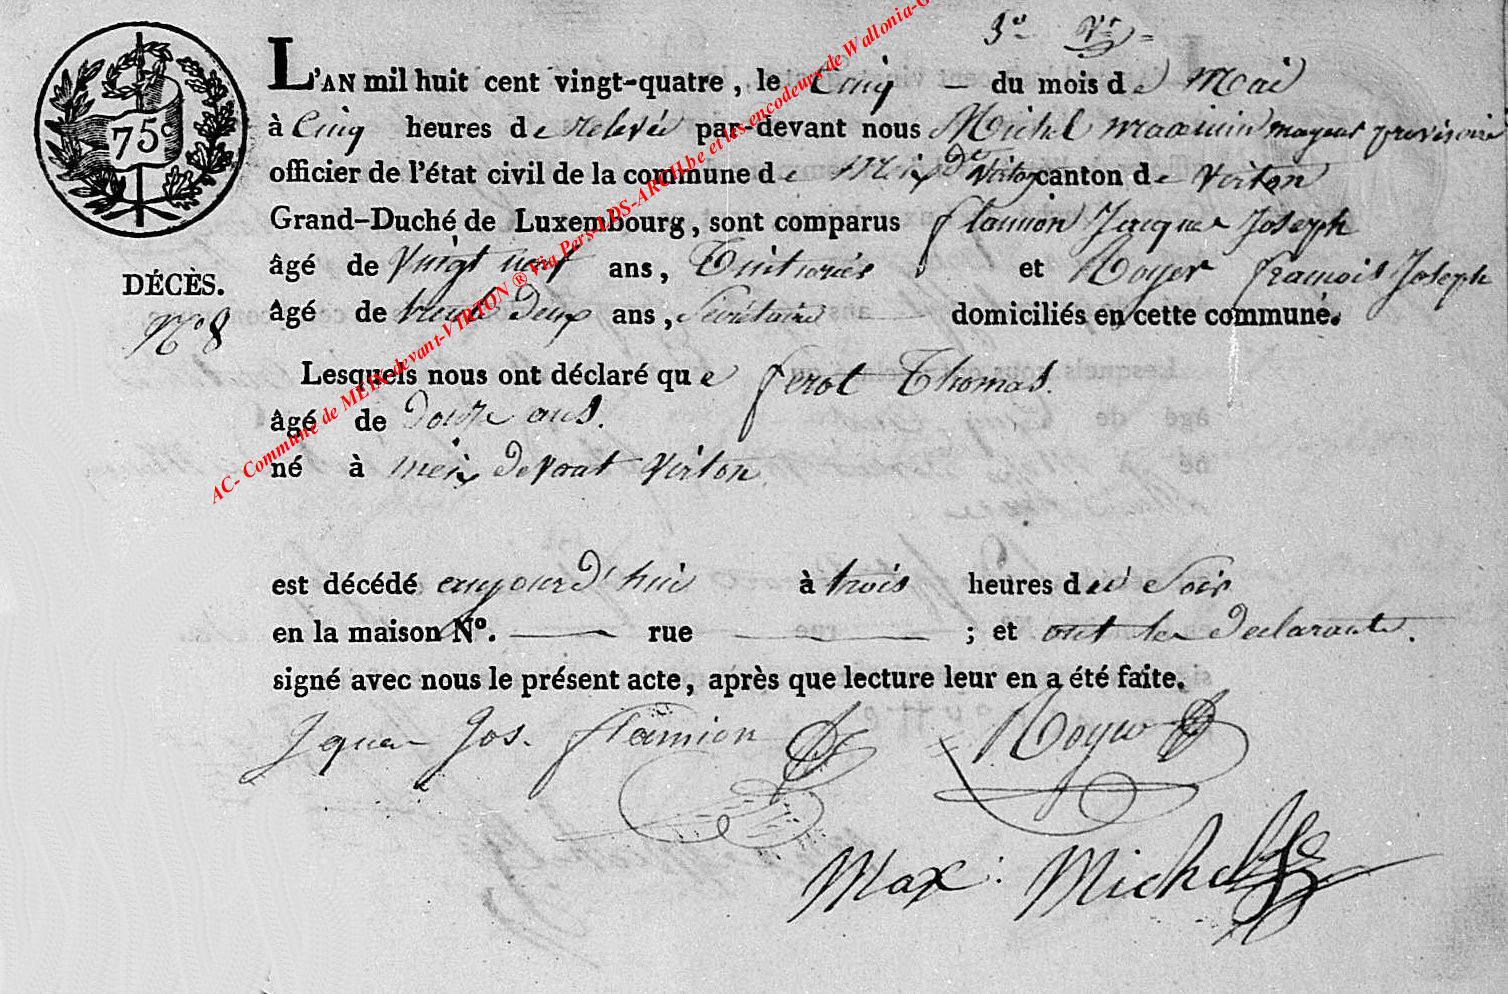 L'AN mil huit cent vingt-quatre, le Cinq — du mois de Mai
75c
à Cinq heures de relevée par-devant nous Michel maximin mayeur provisoire
officier de l'état civil de la commune de Meix Dt Virton canton de Virton
Grand-Duché de Luxembourg, sont comparus flamion Jacques Joseph
DÉCÈS.
âgé de Vingt neuf ans, et Royer francois Joseph
N° 8
âgé de trente Deux ans, Secrétaire — domiciliés en cette commune.
Lesquels nous ont déclaré que ferot Thomas.
âgé de Douze ans.
né à meix devant Virton
est décédé aujourd'hui à trois heures du Soir
en la maison N°. — rue — ; et ont les Declarants.
signé avec nous le présent acte, après que lecture leur en a été faite.
Jques Jos. flamion Royer
Max: Michel
AC- Commune de MEIX-devant-VIRTON ® Via Pers-LDS-ARCH.be et les encodeurs de Wallonia-G